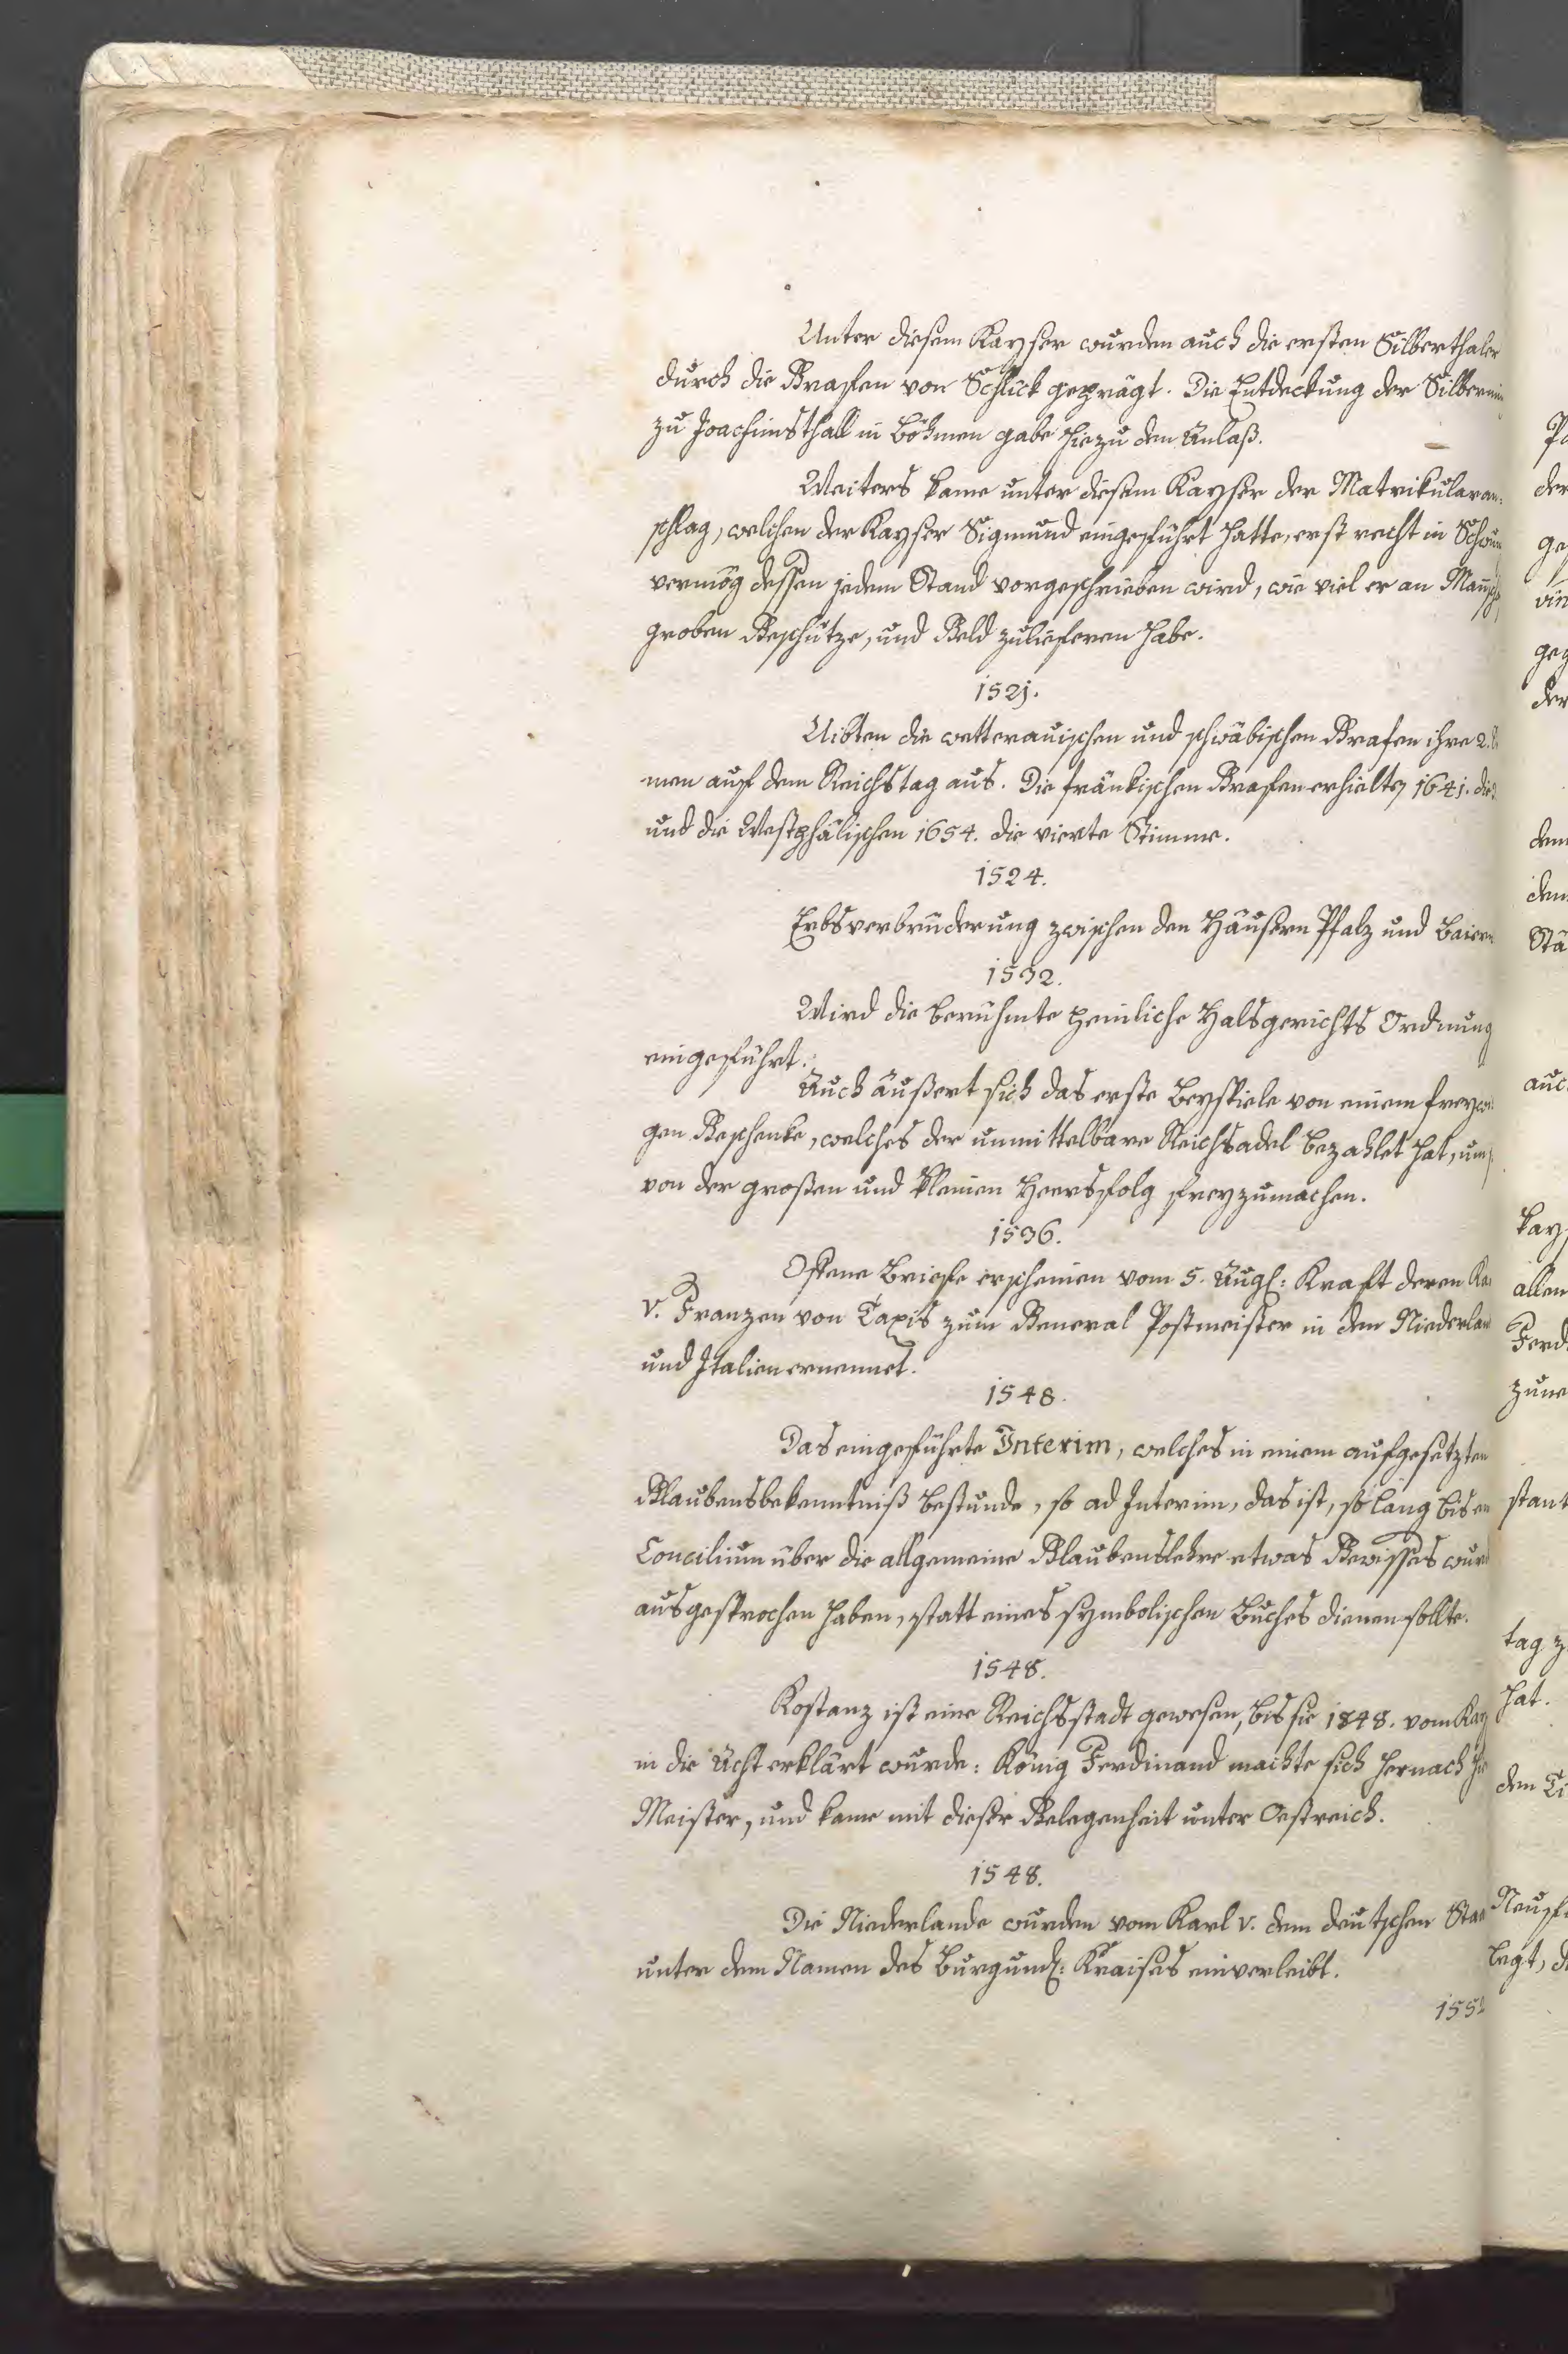 Unter diesem Kayser wurden auch die ersten Silberthaler
durch die Grafen von Schlick geprägt. Die Entdeckung der
zu Joachimsthall in Böhmen gabe hiezu den Anlaß.
Weiters kame unter diesem Kayser der Matrikularan-
schlag, welchen der Kayser Sigmund eingeführt hatte, erst recht in
vermög dessen jedem Stand vorgeschrieben wird, wie viel er an
groben Geschütze, und Geld zulieferen habe.
1521.
Uibten die wetterauischen und schwäbischen Grafen ihre 2.
men auf dem Reichstag aus. Die fränkischen Grafen erhielten 1641. die
und die Westphälischen 1654. die vierte Stimme.
1524.
Erbsverbrüderung zwischen den Häusern Pfalz und Baiern
1532.
Wird die berühmte peinliche Halsgerichts Ordnung
eingeführt.
Auch äußert sich das erste Beyspiele von einem
gen Geschenke, welches der unmittelbare Reichsadel bezahlet hat, um
von der großen und kleinen Heersfolg freyzumachen.
1536.
Offene Briefe erscheinen vom 5. Augl: Kraft deren
V. Franzen von Taxis zum General Postmeister in den
und Italien ernennet.
1548.
Das eingeführte Interim, welches in einem aufgesetzten
Glaubensbekenntniß bestunde, so ad Interim, das ist, so lang bis
Concilium über die allgemeine Glaubenslehre etwas Gewisses
ausgesprochen haben, statt eines symbolischen Buches dienen sollte.
1548.
Kostanz ist eine Reichsstadt gewesen, bis sie 1848. vom
in die Acht erklärt wurde: König Ferdinand machte sich hernach
Meister, und kame mit dieser Gelegenheit unter Oestreich.
1548.
Die Niederlande wurden vom Karl V. dem deutschen
unter dem Namen des Burgundl: Kraises einverleibt.